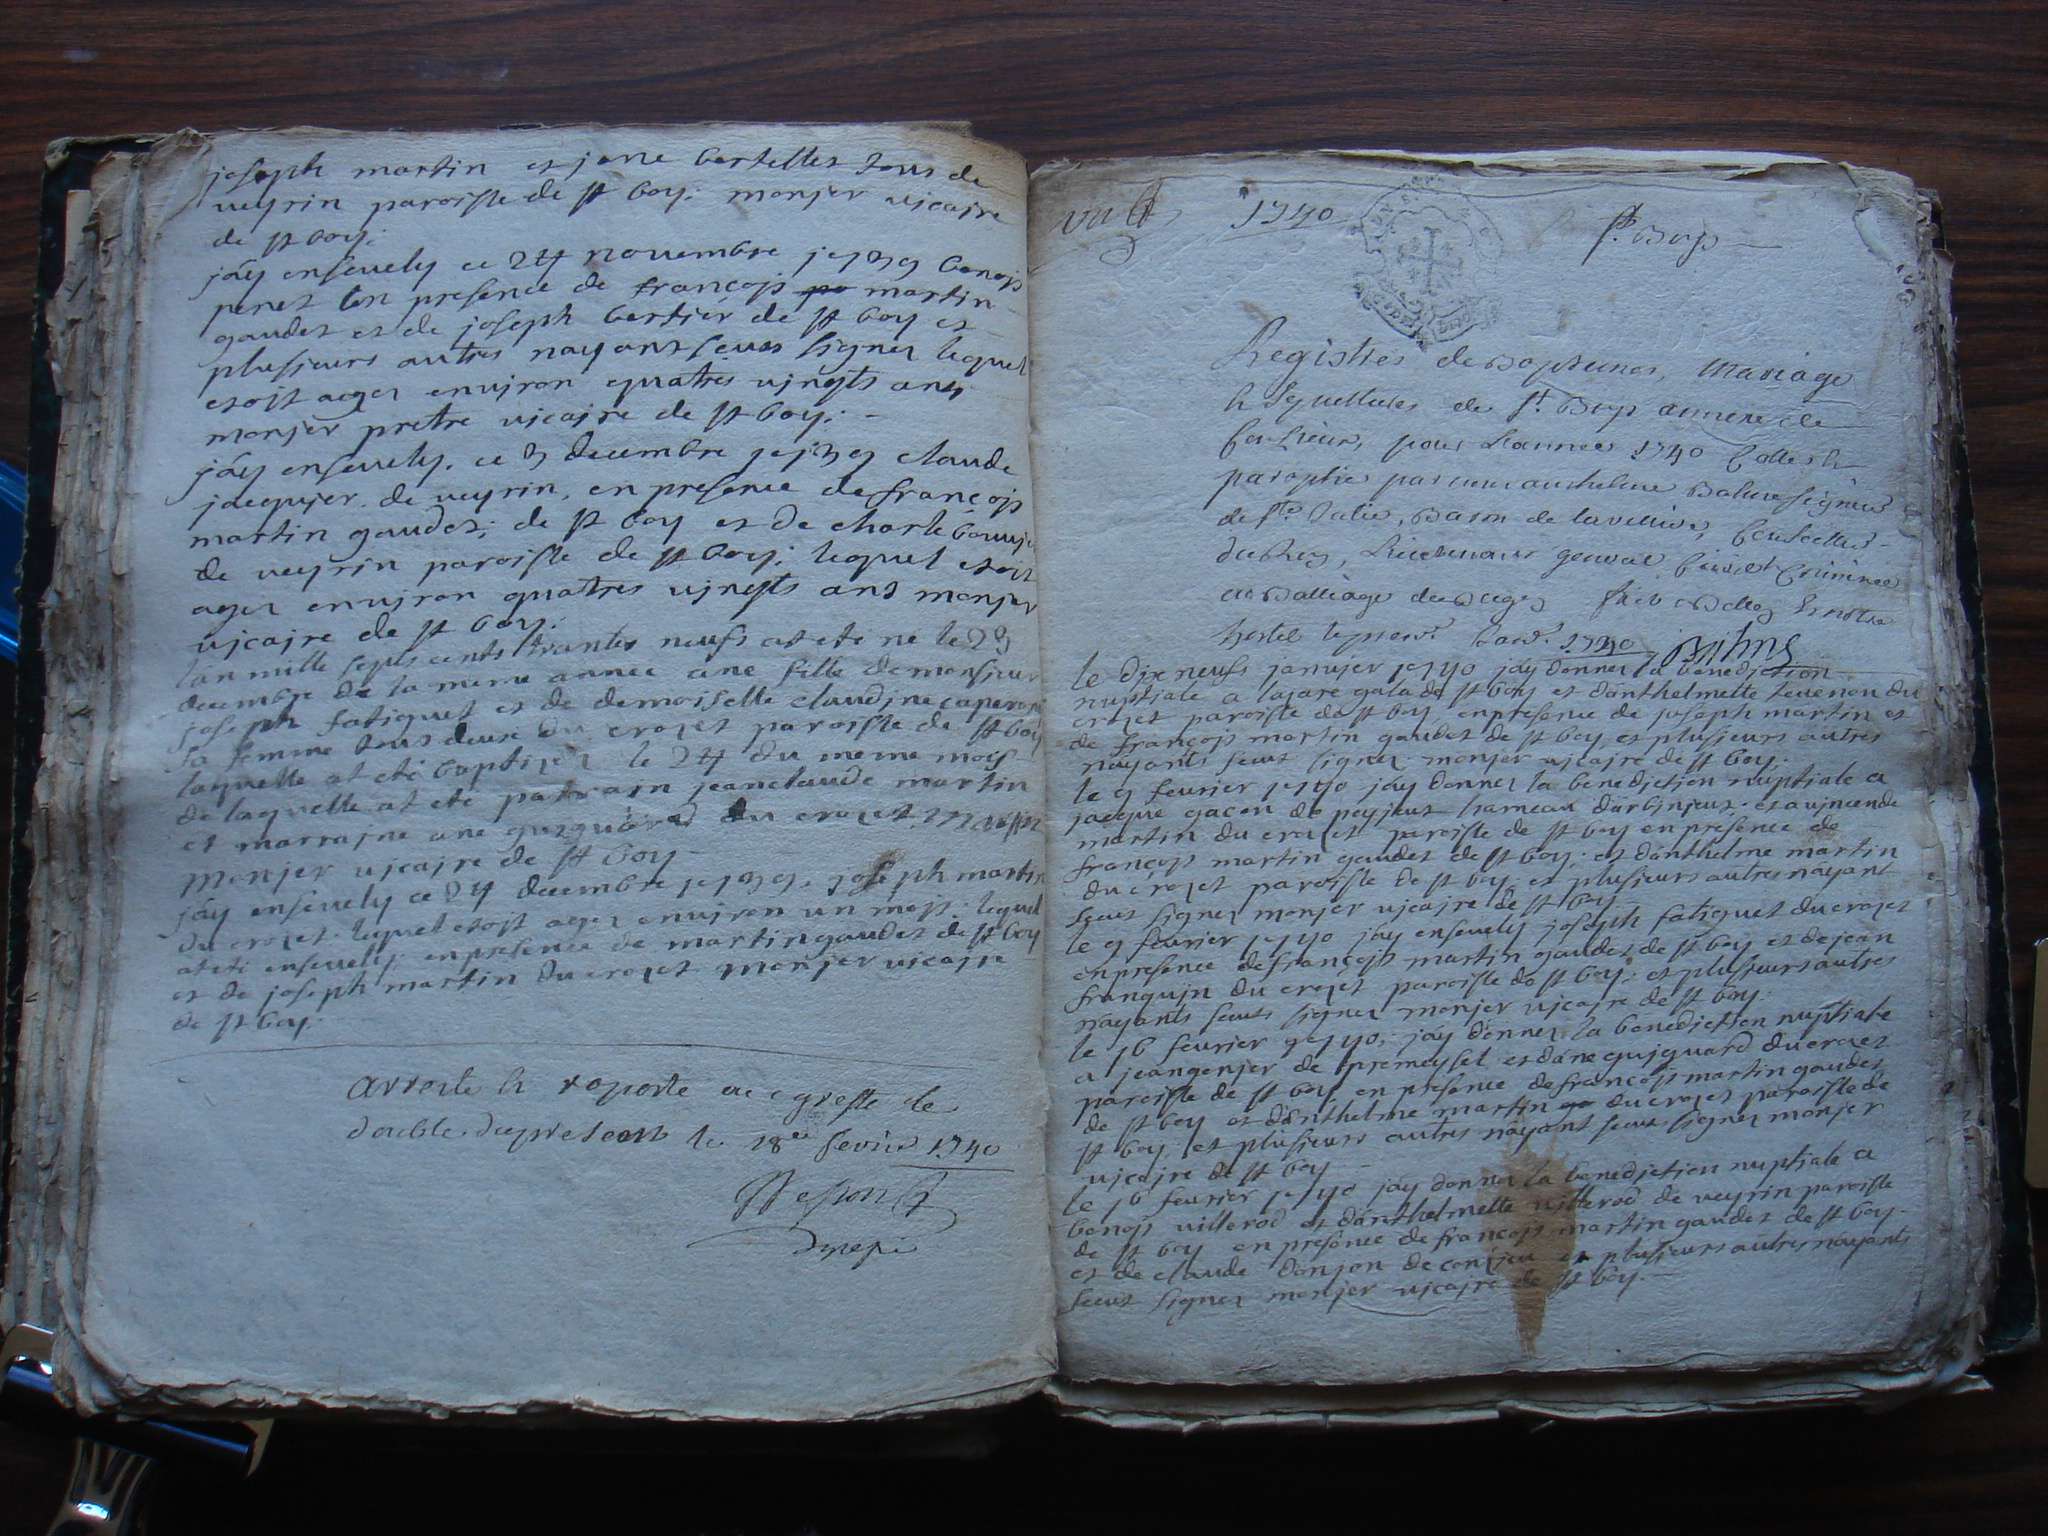 joseph martin et jane bertellet tous de
veyrin paroisse de st boy: monjer vicaire
de st boy:
jáy ensevely ce 24 novembre 1739 benojs
peret en presence de françojs martin
gaudet et de joseph bertjer de st boy et
plusjeurs autres nayant seus signer lequel
etoit ager environ quatres vjngts ans
monjer pretre vjcajre de st boy: -
jáy ensevely. ce 3 decembre 1739 claude
jacqujer de veyrin, en presence de françojs
martin gaudet; de st boy et de charle bouvjer
de veyrin paroisse de st boy: lequel etoit
ager envjron quatres vjngts ans monjer
vjcajre de st boy:
lán mille septs cents trantes neufs at eté né le 23
decembre de la meme année ane fille de monsieur
joseph fatiguet et de demoiselle claudjne caperon
sa femme tous deux du crozet paroisse de st boy
laquelle at eté baptizer le 24 du meme mojs
de laquelle at eté patrain jeanclaude martin
et marrajne ane gujguard du crozet
monjer vjcajre de st boy
jáy ensevely ce 24 decembre 1739. joseph martin
du crozet. lequel etoit ager environ un mojs. lequel
at eté ensevely en presence de martin gaudet de st boy
et de joseph martin du crozet monjer vicajre
de st boy.
arresté & raporté au greffe le
double du present le 18e fevrier 1740
1740
st Boys
Registres de Baptemes, Mariage
& Sepultures de st Boys annexe de
pour L'année 1740 Cottes &
paraphés par nous anthelme seigneur
de ste Julie, Baron de
du Roy, Lieutenant general Civil et Criminel
au Balliage de Bugey
hostel le 1740
le dix neufs janvjer 1740 jáy donner la benediction
nuptiale a lazare gala de st boy et dánthelmette tevenon du
crozet paroisse de st boy, en presence de joseph martin et
de françojs martin gaudet de st boy, et plusjeurs autres
nayants seus signer monjer vjcajre de st boy:
le 9 fevrier 1740 jáy donner la benediction nuptiale a
jacque gacon de peyjeut hameau dárbinjeux; et a vjncende
martin du crozet paroisse de st boy en presence de
françojs martin gaudet de st boy: et dánthelme martin
du crozet paroisse de st boy, et plusjeurs autres nayant
seus signer monjer vjcajre de st boy
le 9 fevrier 1740 jáy ensevely joseph fatiguet du crozet
en presence de françojs martin gaudet de st boy et de jean
franqujn du crozet paroisse de st boy: et plusjeurs autres
náyants seus signer monjer vjcajre de st boy:
le 16 fevrier 1740, jáy donner la benediction nuptiale
a jean genjer de premeysel et dáne gujguard du crozet
paroisse de st boy en presence de françojs martin gaudet
de st boy et dánthelme martin du crozet paroisse de
st boy, et plusjeurs autres nayant seus signer monjer
vjcajre de st boy
le 16 fevrier 1740 jáy donner la benediction nuptiale a
benojs villerod et dánthelmette villerod de veyrin paroisse
de st boy en presence de françojs martin gaudet de st boy-
et de claude donjon de conzieu et plusjeurs autres nayants
seus signer monjer vjcajre de st boy.